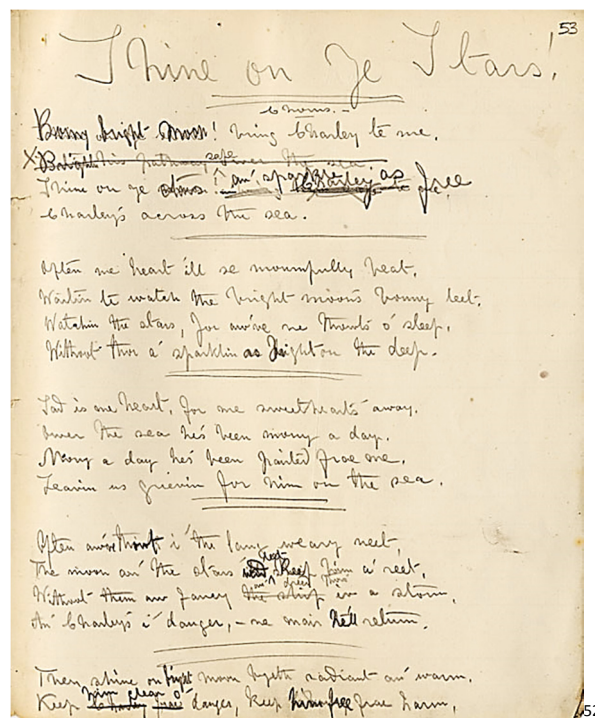 53
Shine on Ye Stars!
Chorus.-
Bonny bright moon! bring Charley to me,
X Bright his pathway safe over the sea
Shine on ye stars! an' sparkle as free
Charley's across the sea.
Often me heart 'ill se mournfully beat,
Waitin to watch the bright moon's bonny leet,
Watchin the stars, for aw've ne thowts o' sleep,
Without thor a' sparklin as bright on the deep.
Sad is me heart, for me sweetheart's away,
Ower the sea he's been mony a day,
Mony a day he's been parted frae me,
Leavin us grievin for him on the sea.
Often aw've thowt i' the lang weary neet,
The moon an' the stars keep him a' reet,
Without them aw fancy the ship in a storm,
An' Charley's i' danger, - ne mair he'll return.
Then shine on bright moon byeth radiant an' warm,
Keep him clear o' danger, keep him free frae harm,
52